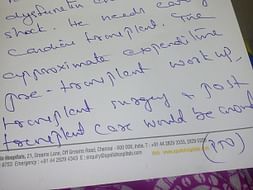 dysfunction
shock. He needs early
cardiac transplant. The
approximate expenditure
pre-transplant work up,
transplant surgery & post
transplant care would be around
Hospitals, 21, Greams Lane, Off Greams Road, Chennai - 600 006, India. T : +91 44 2829 3333, 2829
Emergency : +91 44 2829 4343 E : enquiry@apollohospitals.com
(PTO)